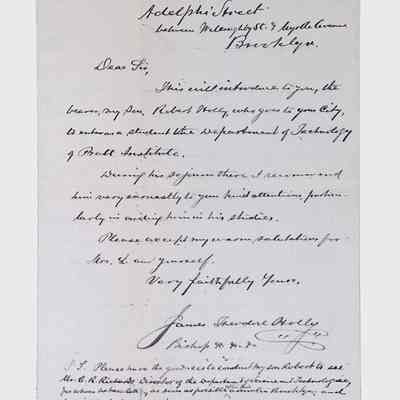 Adelphi Street
between Willoughby St. & Myrtle Avenue
Brooklyn.
Dear Sir,
This will introduce to you, the
bearer, my Son, Robert Holly, who goes to your City,
to enter as a student the Department of Technology
of Pratt Institute.
During his sojourn there I recommend
him very earnestly to your kind attention, particu-
larly in aiding him in his studies.
Please accept my warm salutations for
Mrs. L and yourself.
Very faithfully Yours,
James Theodore Holly
Bishop
P.S. Please have the goodness to conduct my son Robert to see
Mr. C. R. Richards, Director of the Department Science and Technology,
as soon as possible after his arrival in Brooklyn, and